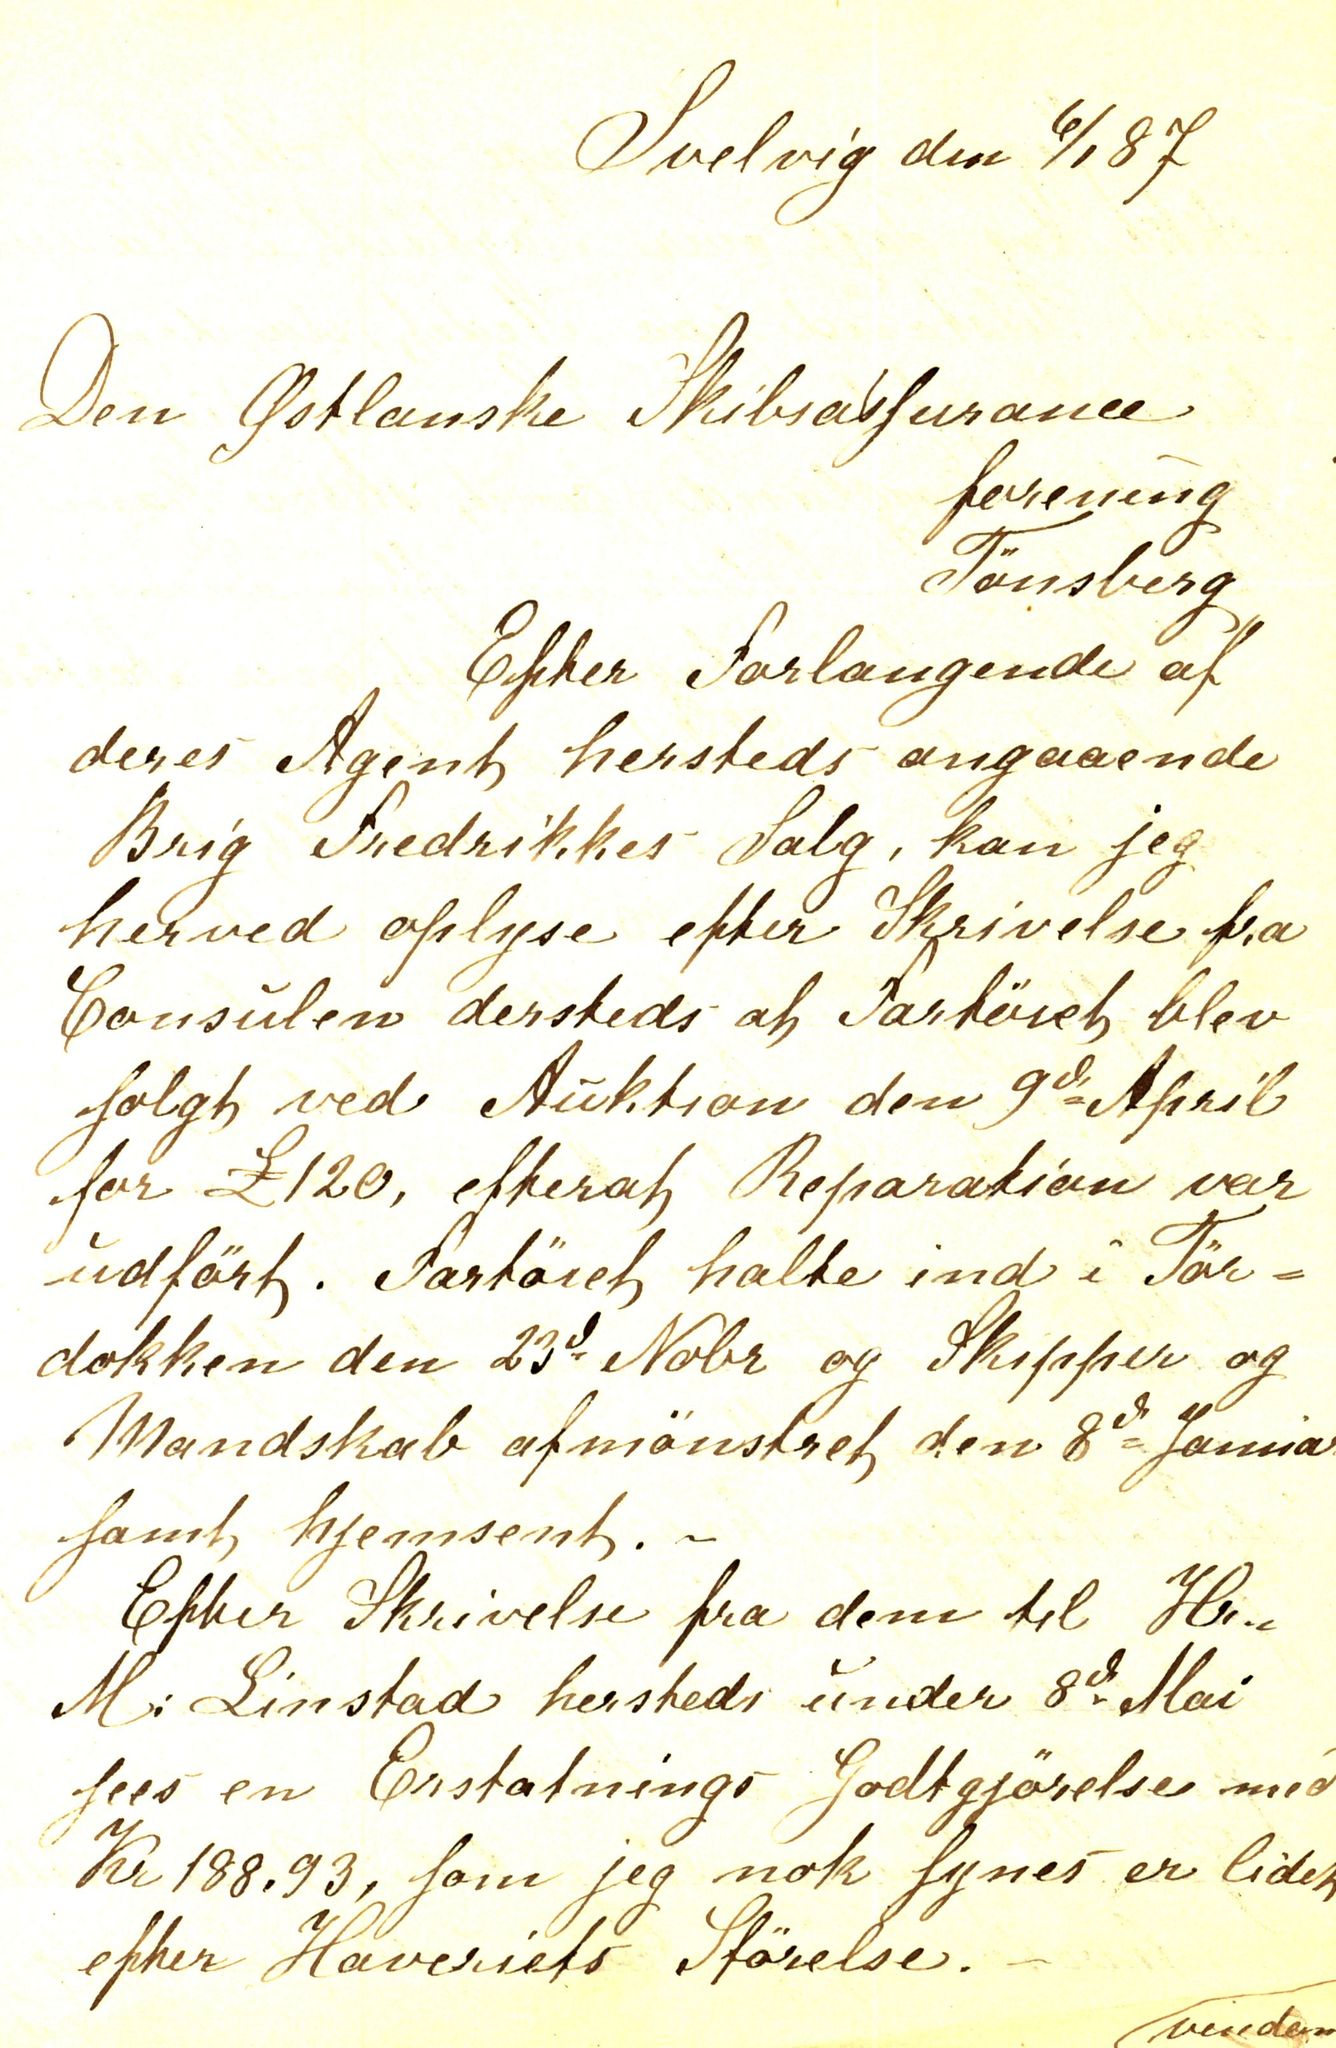 Svelvig den 6/1 87
Den Østlanske Skibsassurance
forening
Tönsberg
Efter Forlangende af
deres Agent hersteds angaaende
Brig Fredrikkes Salg, kan jeg
herved oplyse efter Skrivelse fra
Consulen dersteds at Fartöiet blev
solgt ved Auktion den 9de April
for £120, efterat Reparation var
udfört. Fartöiet halte ind i Tör=
dokken den 23d Nobr og Skipper og
Mandskab afmönstret den 8de Januar
samt hjemsent. -
Efter Skrivelse fra dem til Hr.
M: Linstad hersteds under 8de Mai
sees en Erstatnings Godtgjörelse med
Kr 188.93, som jeg nok synes er lidet
efter Haveriets Störelse. -
vindem